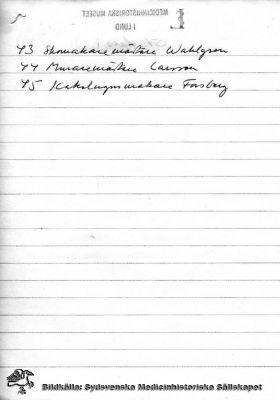 MEDICINHISTORISKA MUSEET
I LUND
43 Skomakaremästare Wahlgren
44 Muraremästare Larsson
45 Kakelugnsmakare Forsberg
Bildkälla: Sydsvenska Medicinhistoriska Sällskapet